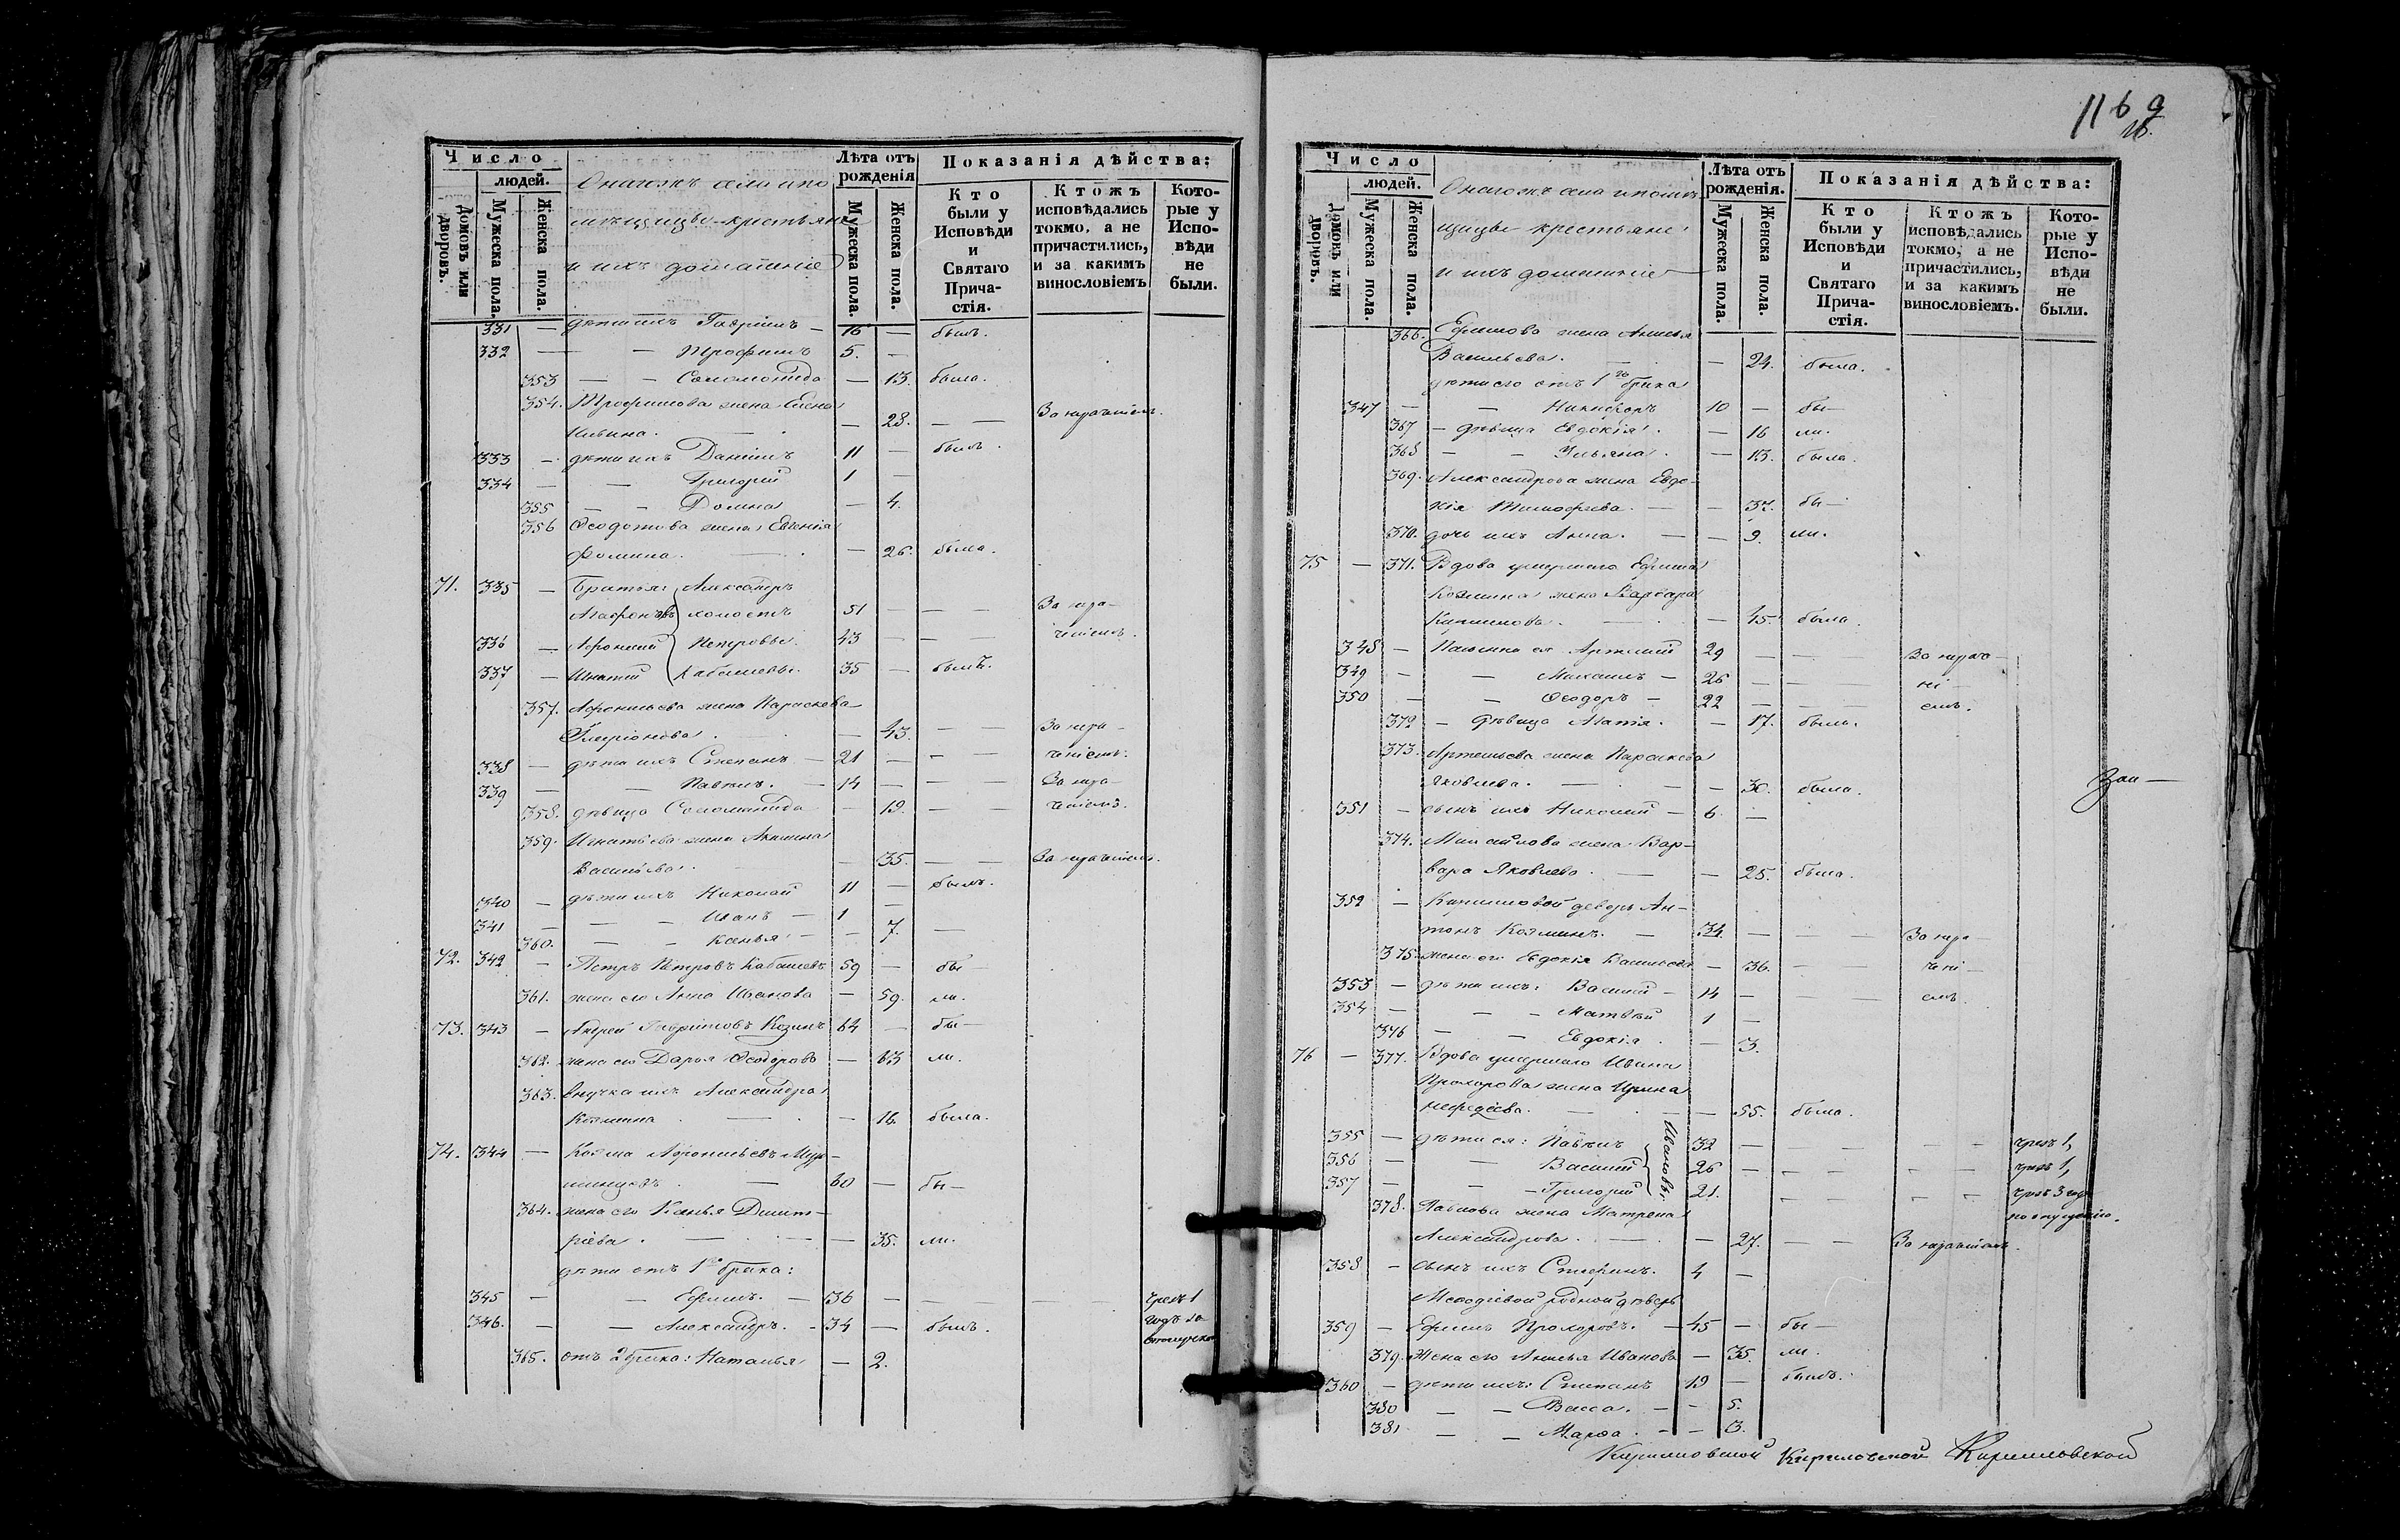 1169
Число
людей.
домовъ или дворовъ.
Мужеска пола.
Женска пола.
Лѣта отъ рожденія
Мужеска пола.
Женска пола.
Показанія дѣйства:
Кто были у Исповѣди и Святаго Прича-стія.
Ктожъ исповѣдались токмо, а не причастились, и за какимъ винословіемъ
Кото-рые у Испо-вѣди не были.
Онагожъ села по
мѣщицы крестьяне
и ихъ домашніе
331 — дѣти ихъ Гавріилъ — 16 — былъ.
332 — — Трофимъ 5. —
353 — — Соломонида — 13. была.
354. Трофимова жена Елена
— 28. — — За нерачіемъ.
333 — дѣти ихъ Даніилъ 11 — былъ.
334 — — Григорій 1 —
355 — — Домна — 4.
356 Ѳеодотова жена Евгенія
Фомина. — 26. была.
71. 335 — Братья: Александръ
холостъ 51 — — — За нера-
336 — Афонасій Петровы 43 — — — чіемъ.
337 — Игнатій Кабашевы. 35 — былъ.
357. Афонасьева жена Параскева
Иларіонова. — 43. — — За нера-
338 — дѣти ихъ Степанъ — 21 — — — чіемъ.
339 — — Павелъ. — 14 — — — За нера-
358. дѣвица Соломонида — 19. — — чіемъ.
359. Игнатьева жена Акилина
Васильева. — 35. — — За нерачіемъ.
340 — дѣти ихъ Николай 11 — былъ.
341 — — Иванъ — 1 —
360. — — Ксенья — — 7. —
72. 342 — Петръ Петровъ Кабашевъ 59 — бы-
361. жена его Анна Иванова — 59. ли.
73. 343 — Андрей Гавриловъ Козинъ 64 — бы-
362. жена его Дарья Ѳеодорова — 63 ли.
363. внучка ихъ Александра
Козмина — 16. была.
74. 344 — Козма Афонасьевъ
60 — бы-
364. жена его Ксенья Димит-
ріева. — 35. ли.
дѣти отъ 1го брака:
345 — — Ефимъ. — 36 — — — чрезъ 1
346. — — Александръ. — 34 — былъ. годъ за
отлучкою
365. отъ 2 брака: Наталья — 2.
Число
людей.
домовъ или дворовъ.
Мужеска пола.
Женска пола.
Лѣта отъ рожденія.
Мужеска пола.
Женска пола.
Показанія дѣйства:
Кто были у Исповѣди и Святаго Прича-стія.
Ктожъ исповѣдались токмо, а не причастились, и за какимъ винословіемъ.
Кото-рые у Испо-вѣди не были.
Онагожъ села помѣ-
щицы крестьяне
и ихъ домашніе
366. Ефимова жена Анисья
Васильева. — 24. была.
дѣти его отъ 1го брака
347 — — Никифоръ 10 — бы-
367 — дѣвица Евдокія. — 16 ли.
368 — — Ульяна. — 13. была.
369. Александрова жена Евдо-
кія Тимофеева. — — 37. бы-
370. дочь ихъ Анна. — — 9. ли.
75 — 371. Вдова умершаго Ефима
Козмина жена Варвара
Кирилова. — 45. была.
348 — Пасынки ея Артемій 29 — — За нера-
349 — — Михаилъ — 26 — — чі-
350 — — Ѳеодоръ — 22 — — емъ.
372 — дѣвица Агапія. — 17. была.
373. Артемьева жена Параскева
Яковлева. — — 30. была.
351 — сынъ ихъ Николай — 6 —
374. Михайлова жена Вар-
вара Яковлева. — — 25. была.
352 — Кириловой деверь Ан-
тонъ Козминъ. — 34. — — За нера-
375. жена его Евдокія Васильева — 36. — — чі-
353 — дѣти ихъ: Василій — 14 — — емъ.
354 — — Матвѣй 1 —
376 — — Евдокія. — 3.
76 — 377. Вдова умершаго Ивана
Прохорова жена Ирина
Мефодіева. — — 55. была.
355 — дѣти ея: Павелъ 32 — — — чрезъ 1,
356 — — Василій 26 — — — чрезъ 1,
Ивановы.
357 — — Григорій 21. — — — чрезъ 3 года
по опущенію.
378. Павлова жена Матрена
Александрова. — 27. — — За нерачіемъ.
358 — сынъ ихъ Стефанъ. 4 —
Мефодіевой родной дѣверь
359 — Ефимъ Прохоровъ. — 45 — бы-
379. Жена его Анисья Иванова — 35. ли.
360 — дѣти ихъ: Степанъ 19 — былъ.
380 — — Васса. — — 5.
381 — — Марѳа. — — 3.
Кириловской Кириловской Кириловской